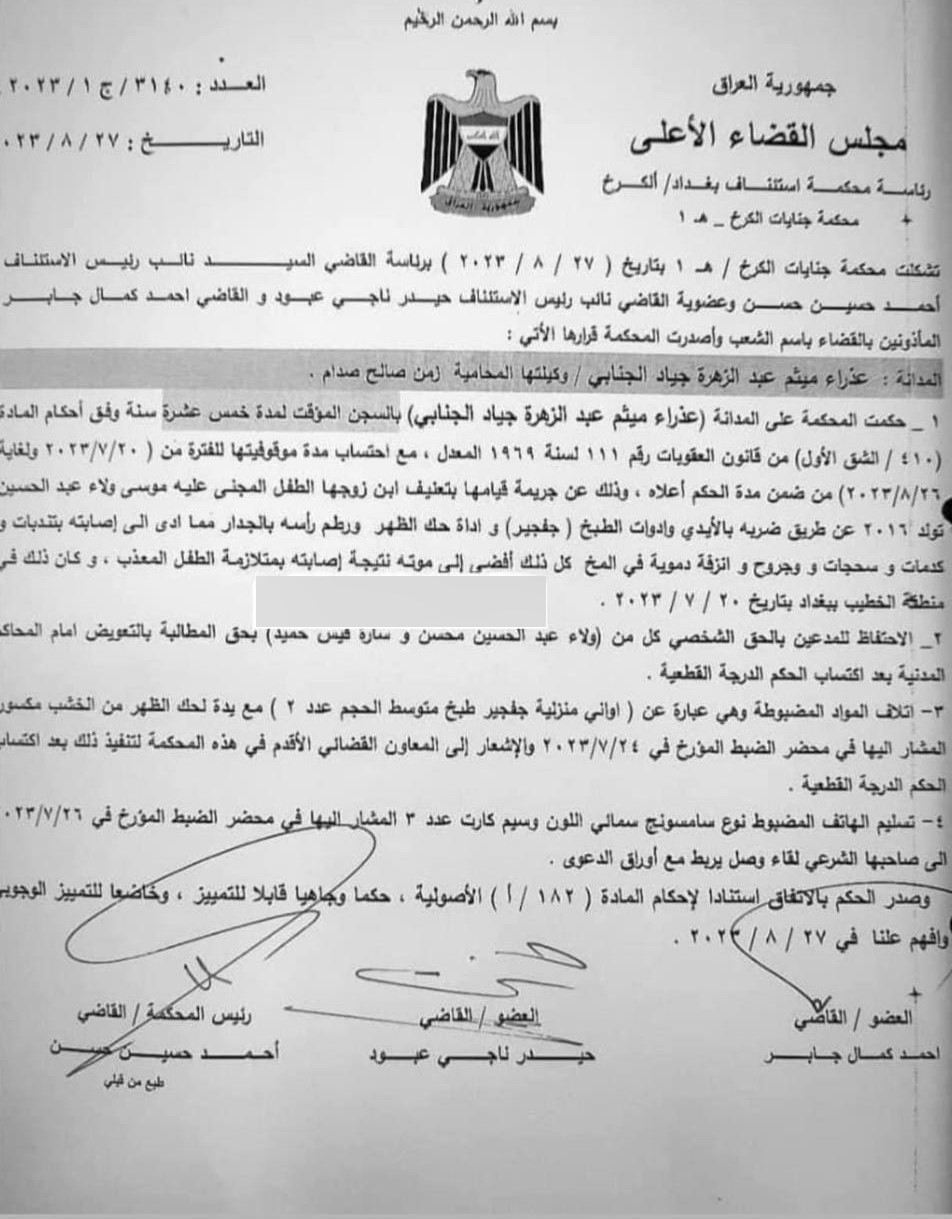 بسم الله الرحمن الرحيم
جمهورية العراق
مجلس القضاء الأعلى
رئاسة محكمة استئناف بغداد/ ألكرخ
محكمة جنايات الكرخ _ هـ ١
العـــدد : ٣١٤٠ / ج ١ / ٢٠٢٣
التاريـــــــخ : ٢٧ / ٨ / ٠٢٣
جمهورية العراق
تشكلت محكمة جنايات الكرخ / هـ ١ بتاريخ ( ٢٧ / ٨ / ٢٠٢٣ ) برئاسة القاضي السيـــــــد نائب رئيس الاستئناف
أحمـــد حسيـــن حســـن وعضوية القاضي نائب رئيس الإستئناف حيـدر ناجـي عبـود و القاضي احمـد كمـال جـابـر
المأذونين بالقضاء باسم الشعب وأصدرت المحكمة قرارها الأتي :
المدانة : عذراء ميثم عبد الزهرة جياد الجنابي / وكيلتها المحامية زمن صالح صدام .
١ _ حكمت المحكمة على المدانة (عذراء ميثم عبد الزهرة جياد الجنابي) بالسجن المؤقت لمدة خمس عشرة سنة وفق أحكام المادة
(٤١٠ / الشق الأول) من قانون العقوبات رقم ١١١ لسنة ١٩٦٩ المعدل ، مع احتساب مدة موقوفيتها للفترة من ( ٢٠٢٣/٧/٢٠ ولغاية
٢٠٢٣/٨/٢٦) من ضمن مدة الحكم أعلاه ، وذلك عن جريمة قيامها بتعنيف ابن زوجها الطفل المجنى عليه موسى ولاء عبد الحسين
تولد ٢٠١٦ عن طريق ضربه بالأيدي وادوات الطبخ ( جفجير) و اداة حك الظهر ورطم رأسه بالجدار مما ادى الى إصابته بتندبات و
كدمات و سحجات و وجروح و انزفة دموية في المخ كل ذلك أفضى إلى موته نتيجة إصابته بمتلازمة الطفل المعذب ، و كان ذلك في
منطقة الخطيب ببغداد بتاريخ ٢٠ / ٧ / ٢٠٢٣ .
٢_ الاحتفاظ للمدعين بالحق الشخصي كل من (ولاء عبد الحسين محسن و سارة قيس حميد) بحق المطالبة بالتعويض امام المحاكم
المدنية بعد اكتساب الحكم الدرجة القطعية .
٣- اتلاف المواد المضبوطة وهي عبارة عن ( اواني منزلية جفجير طبخ متوسط الحجم عدد ٢ ) مع يدة لحك الظهر من الخشب مكسور
المشار اليها في محضر الضبط المؤرخ في ٢٠٢٣/٧/٢٤ والإشعار إلى المعاون القضائي الأقدم في هذه المحكمة لتنفيذ ذلك بعد اكتساب
الحكم الدرجة القطعية .
٤- تسليم الهاتف المضبوط نوع سامسونج سمائي اللون وسيم كارت عدد ٣ المشار اليها في محضر الضبط المؤرخ في ٠٢٣/٧/٢٦
الى صاحبها الشرعي لقاء وصل يربط مع أوراق الدعوى .
وصدر الحكم بالاتفاق استنادا لإحكام المادة ( ١٨٢ / أ ) الأصولية ، حكما وجاهيا قابلا للتمييز ، وخاضعا للتمييز الوجوبي
وافهم علنا في ٢٧ / ٨ / ٢٠٢٣ .
العضو / القاضي
احمد كمـال جـابـر
العضو / القاضي
حيـدر ناجـي عبـود
رئيس المحكمة / القاضي
أحمـــد حسيـــن حســـن
طبع من قبلي